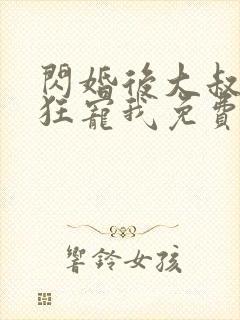 閃婚後大叔
狂寵我免費
響鈴女孩